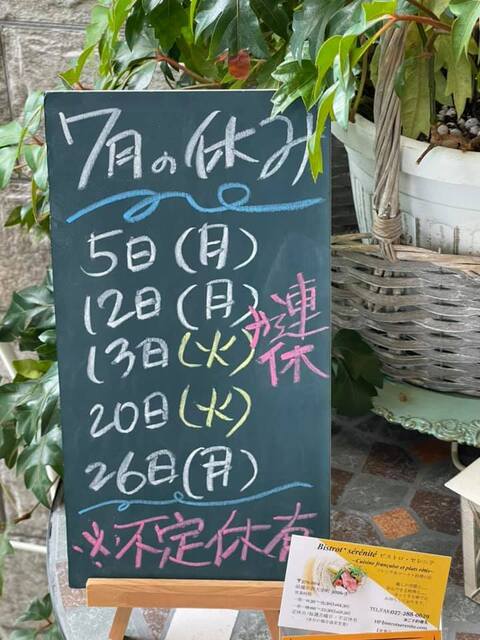 7月の休み
5日(月)
12日(月)
13日(火)
連休
20日(火)
26日(月)
※不定休有
Bistrot* sérénité ビストロ・セレニテ
Cuisine française et plats rôtis
TEL/FAX 027-288-0029